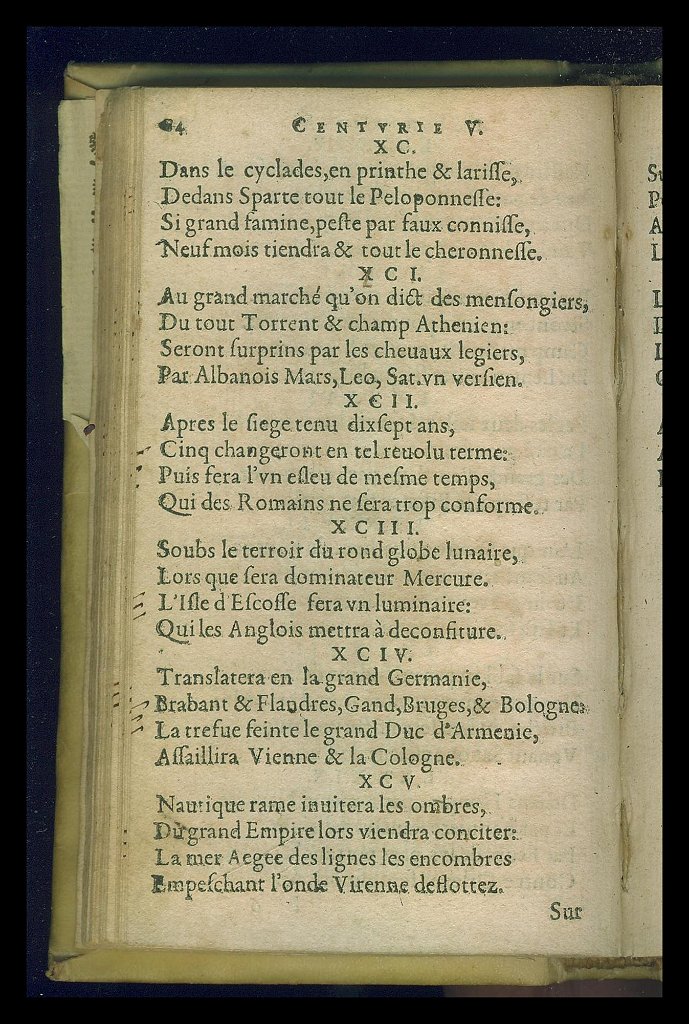 84 CENTVRIE V.
X C.
Dans le cyclades, en printhe & lariſſe,
Dedans Sparte tout le Peloponneſſe:
Si grand famine, peſte par faux conniſſe,
Neuf mois tiendra & tout le cheronneſſe.
X C I.
Au grand marché qu'on dict des menſongiers,
Du tout Torrent & champ Athenien:
Seront ſurprins par les cheuaux legiers,
Par Albanois Mars, Leo, Sat. vn verſien.
X C I I.
Apres le ſiege tenu dixſept ans,
Cinq changeront en tel reuolu terme:
Puis ſera l'vn eſleu de meſme temps,
Qui des Romains ne ſera trop conforme.
X C I I I.
Soubs le terroir du rond globe lunaire,
Lors que ſera dominateur Mercure.
L'Iſle d'Eſcoſſe ſera vn luminaire:
Qui les Anglois mettra à deconfiture.
X C I V.
Translatera en la grand Germanie,
Brabant & Flandres, Gand, Bruges, & Bologne:
La trefue feinte le grand Duc d'Armenie,
Aſſaillira Vienne & la Cologne.
X C V.
Nautique rame inuitera les ombres,
Du grand Empire lors viendra conciter:
La mer Aegee des lignes les encombres
Empeſchant l'onde Virenne deflottez.
Sur